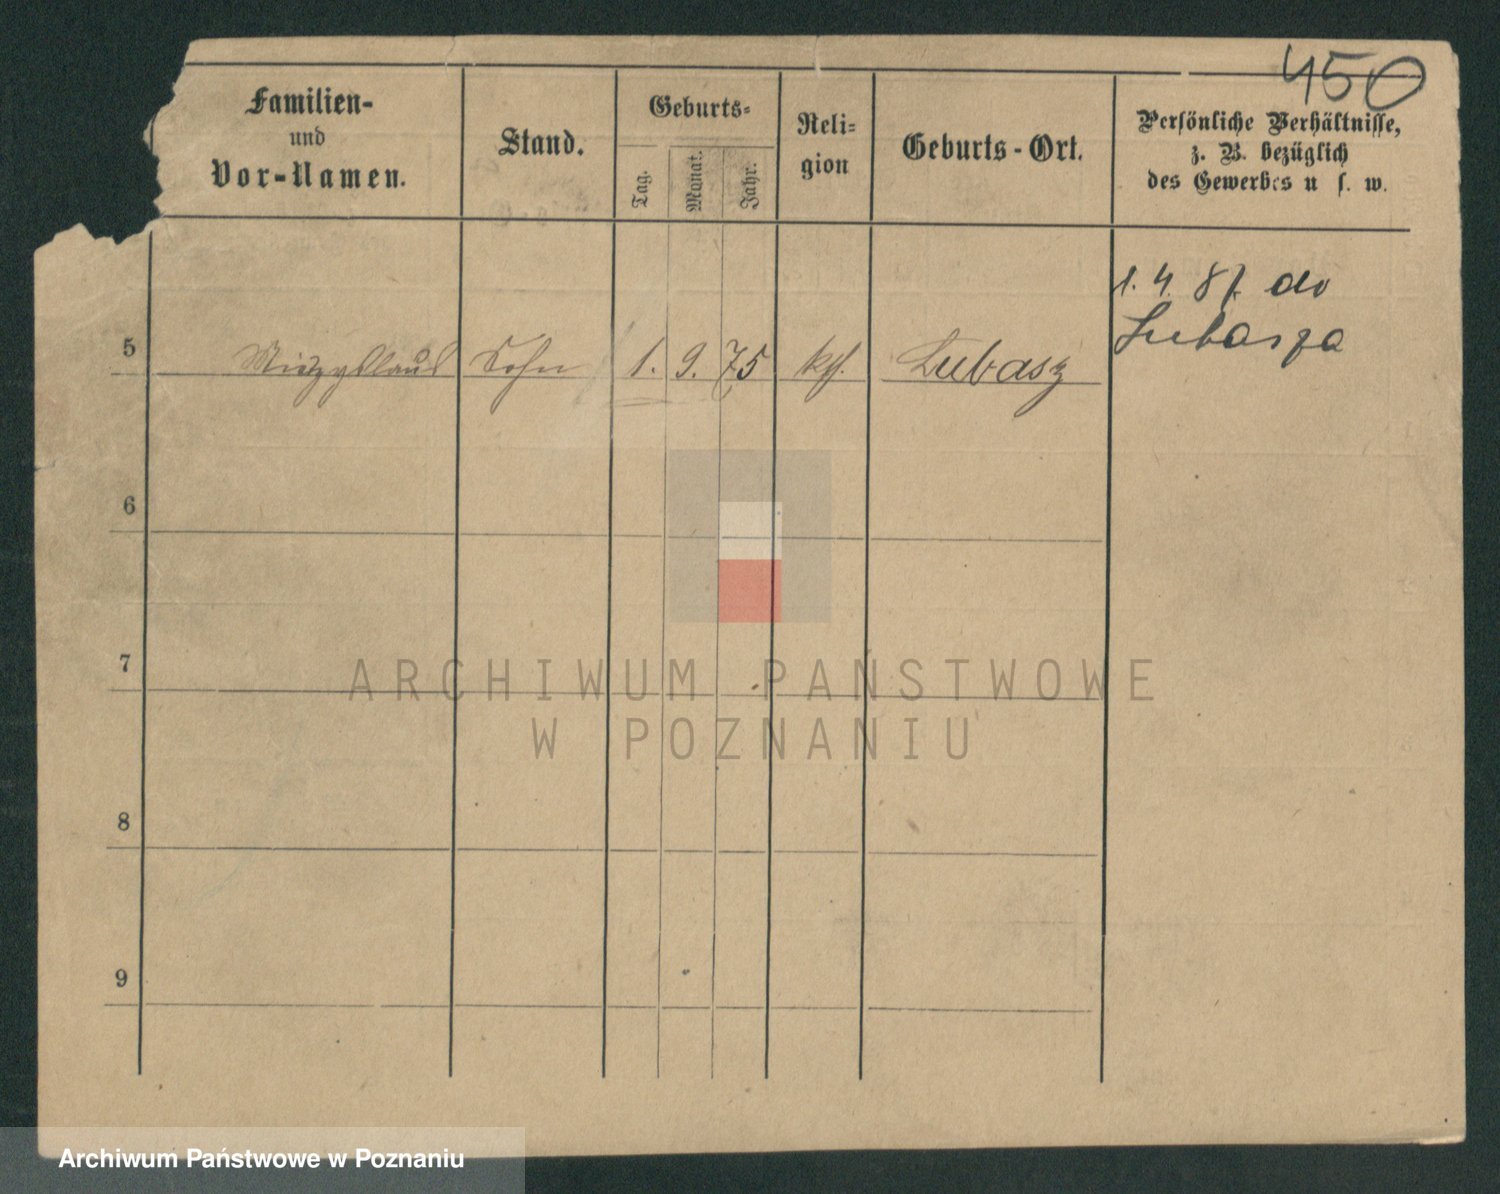 450
Familien-
und
Vor-Namen.
Stand.
Geburts-
Tag.
Monat.
Jahr.
Reli-
gion
Geburts-Ort.
Persönliche Verhältnisse,
z. B. bezüglich
des Gewerbes u s. w.
1. 4. 87. do
Lubasza
5 Miezyslaus Sohn 1. 9. 75 kth. Lubasz
6
7
ARCHIWUM PAŃSTWOWE
W POZNANIU
8
9
Archiwum Państwowe w Poznaniu